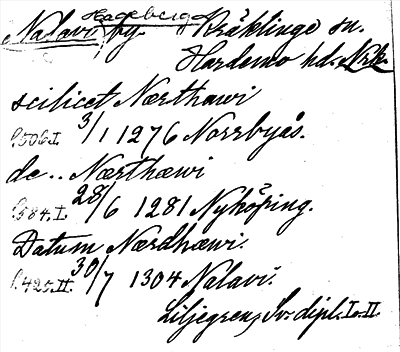 Hageberga
Nalavi, by. Kräklinge sn.
Hardemo hd. Nrk.
scilicet Nærthawi
s. 506. I. 3/1 1276 Norrbyås.
de .. Nærthæwi
s. 584. I. 28/6 1281 Nyköping.
Datum Nærdhæwi.
s. 425. II. 30/7 1304 Nalavi.
Liljegren, Sv. dipl. I-II.